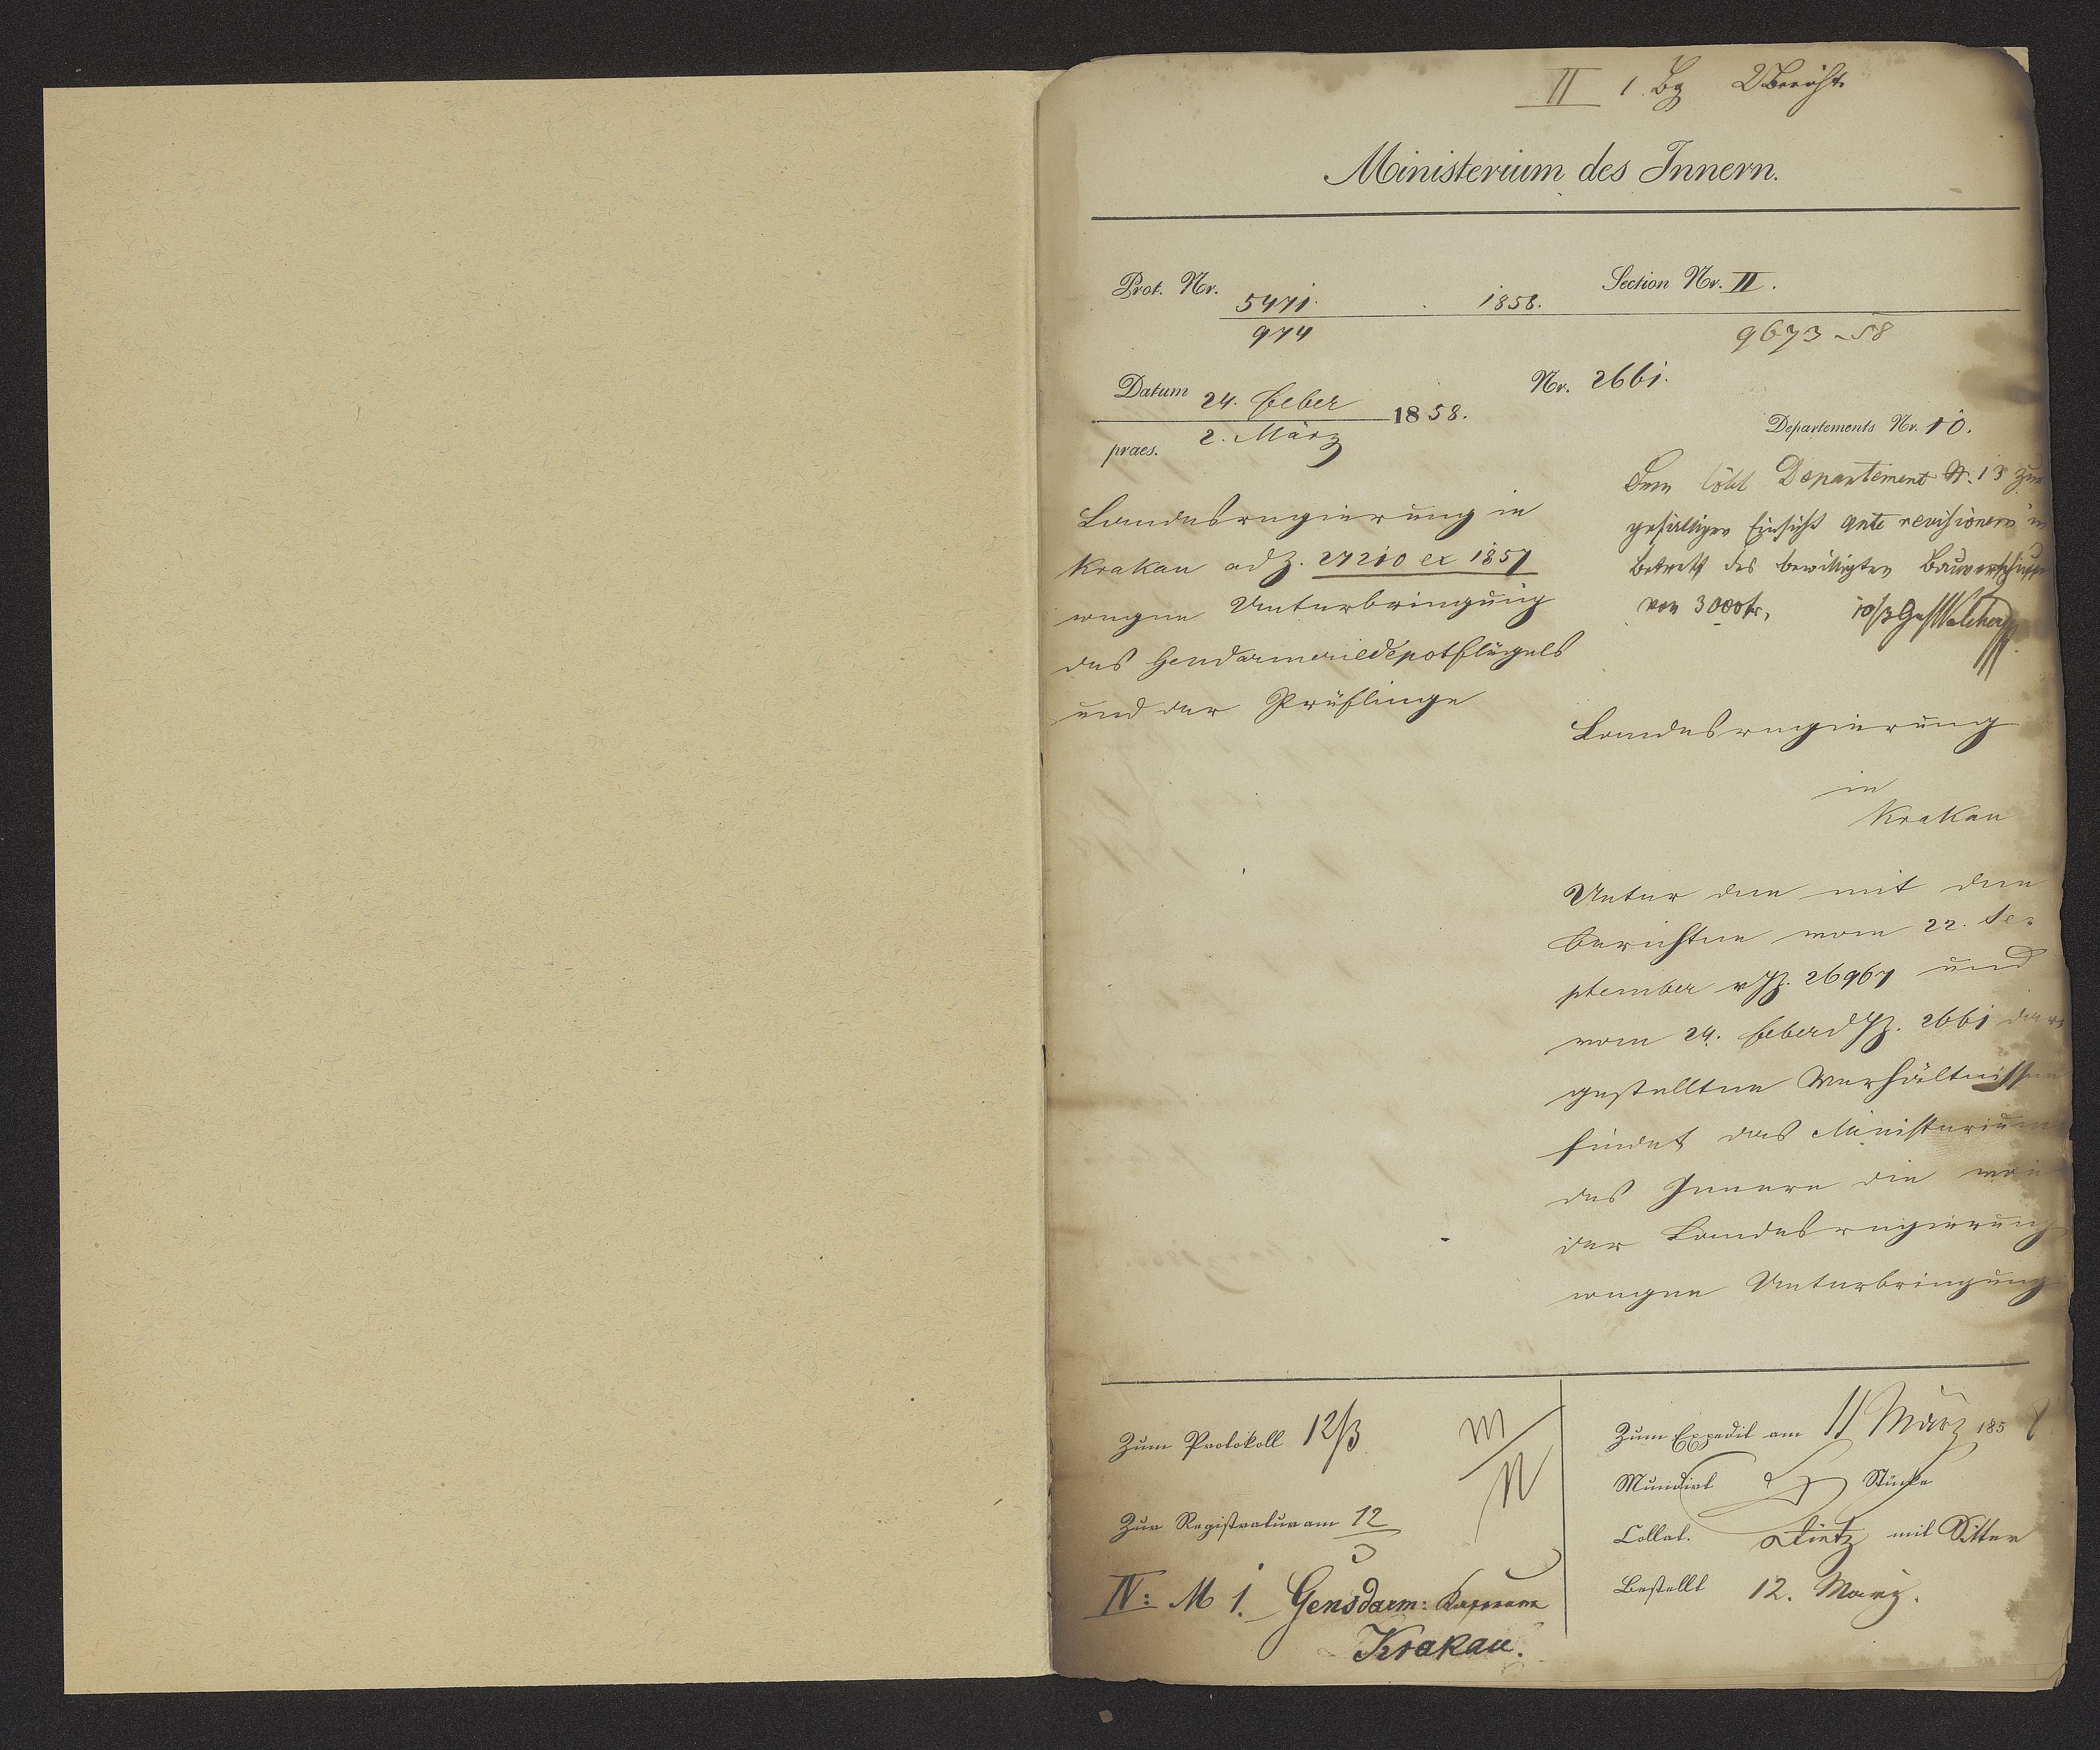 II 1 Bg
Ministerium des Innern.
Prot. Nr. 5471 1858. Section Nr. II.
974
9673-58
Datum 24. Feber 1858. Nr. 2661.
praes. 2. März
Departements Nr. 10.
Landesregierung in
Krakau ad Z. 27210 ex 1857
wegen Unterbringung
des Gendarmeriedepotflügels
und der Prüflinge
Dem löbl Departement Nr. 13 zur
gefälligen Einsicht ante revisionem in
Betreff des bewilligten Bauvorschusses
von 3000 fr. 10/3
Landesregierung
in
Krakau
Unter den mit den
Berichten vom 22. Se-
ptember v J Z. 26967 und
vom 24. Feber d J Z. 2661 dar
gestellten Verhältnissen
findet das Ministerium
des Innern die von
der Landesregierung
wegen Unterbringung
Zum Protokoll 12/3
Zur Registratur am 12
3
IV: M 1. Gensdarm: Kasernen
Krakau.
Zum Expedit am 11 März 1858
Mundirt Stücke
Collat. Dietz mit Ritter
Bestellt 12. März.